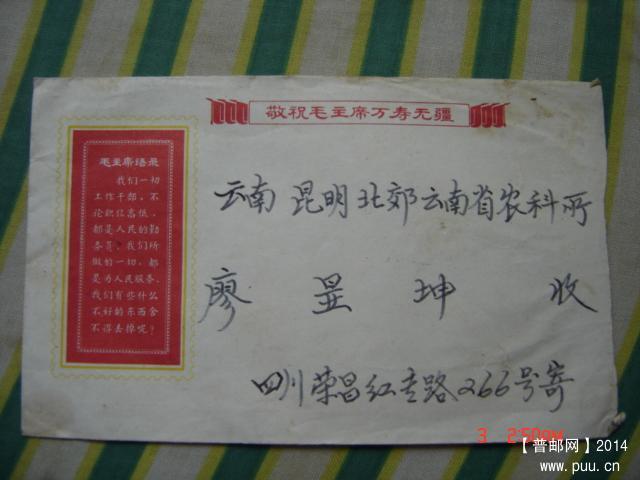 敬祝毛主席万寿无疆
毛主席语录
我们一切
工作干部，不
论职位高低，
都是人民的勤
务员，我们所
做的一切，都
是为人民服务，
我们有些什么
不好的东西舍
不得丢掉呢？
云南 昆明北郊云南省农科所
廖昱坤 收
四川荣昌红专路266号寄
3 2:50PM
【普邮网】2014
www.puu.cn